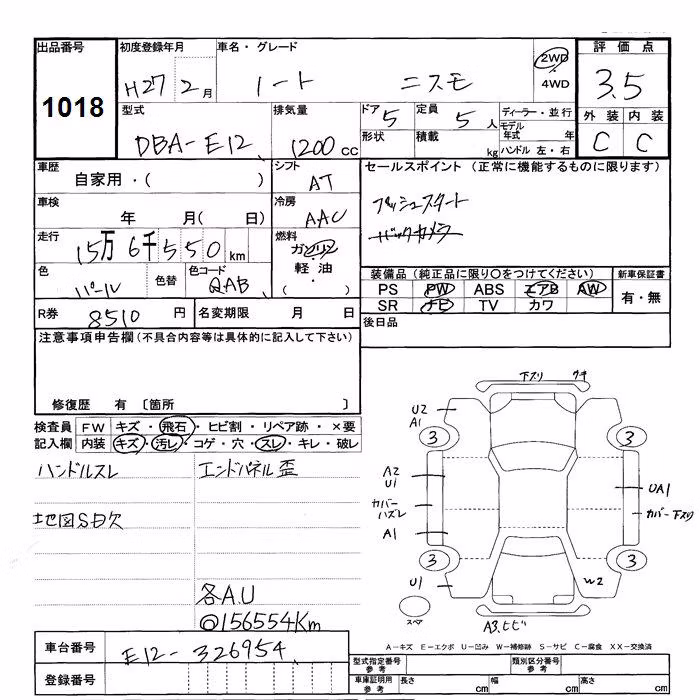 出品番号 初度登録年月 車名・グレード 評価点
1018 H27 2月 ノート ニスモ 2WD 3.5
4WD
型式 排気量 ドア 5 定員 5人 ディーラー・並行 外装 内装
DBA-E12 1200cc 形状 積載 kg モデル年式 年 C C
ハンドル 左・右
車歴 シフト セールスポイント (正常に機能するものに限ります)
自家用・( ) AT プッシュスタート
車検 冷房 バックカメラ
年 月( 日) AAC
走行 燃料
15万6千550km ガソリン
色 色替 色コード 軽油 装備品 (純正品に限り〇をつけてください) 新車保証書
パール QAB ( ・ ) PS PW ABS エアB AW 有・無
R券 8510円 名変期限 月 日 SR ナビ TV カワ
注意事項申告欄 (不具合内容等は具体的に記入して下さい) 後日品
修復歴 有 〔箇所 〕
検査員 FW キズ・飛石・ヒビ割・リペア跡・×要
記入欄 内装 キズ・汚レ・コゲ・穴・スレ・キレ・破レ
ハンドルスレ エンドパネル歪
地図SD欠
各A.U
@156554Km
下スリ
U2
A1
3 3
A2
U1 UA1
カバーハズレ カバー下スリ
A1
3 3
U1 W2
スペア A3.ヒビ
車台番号 E12-326954
登録番号
A-キズ E-エクボ U-凹み W-補修跡 S-サビ C-腐食 XX-交換済
型式指定番号 参考 類別区分番号 参考
車庫証明用 参考 長さ cm 幅 cm 高さ cm